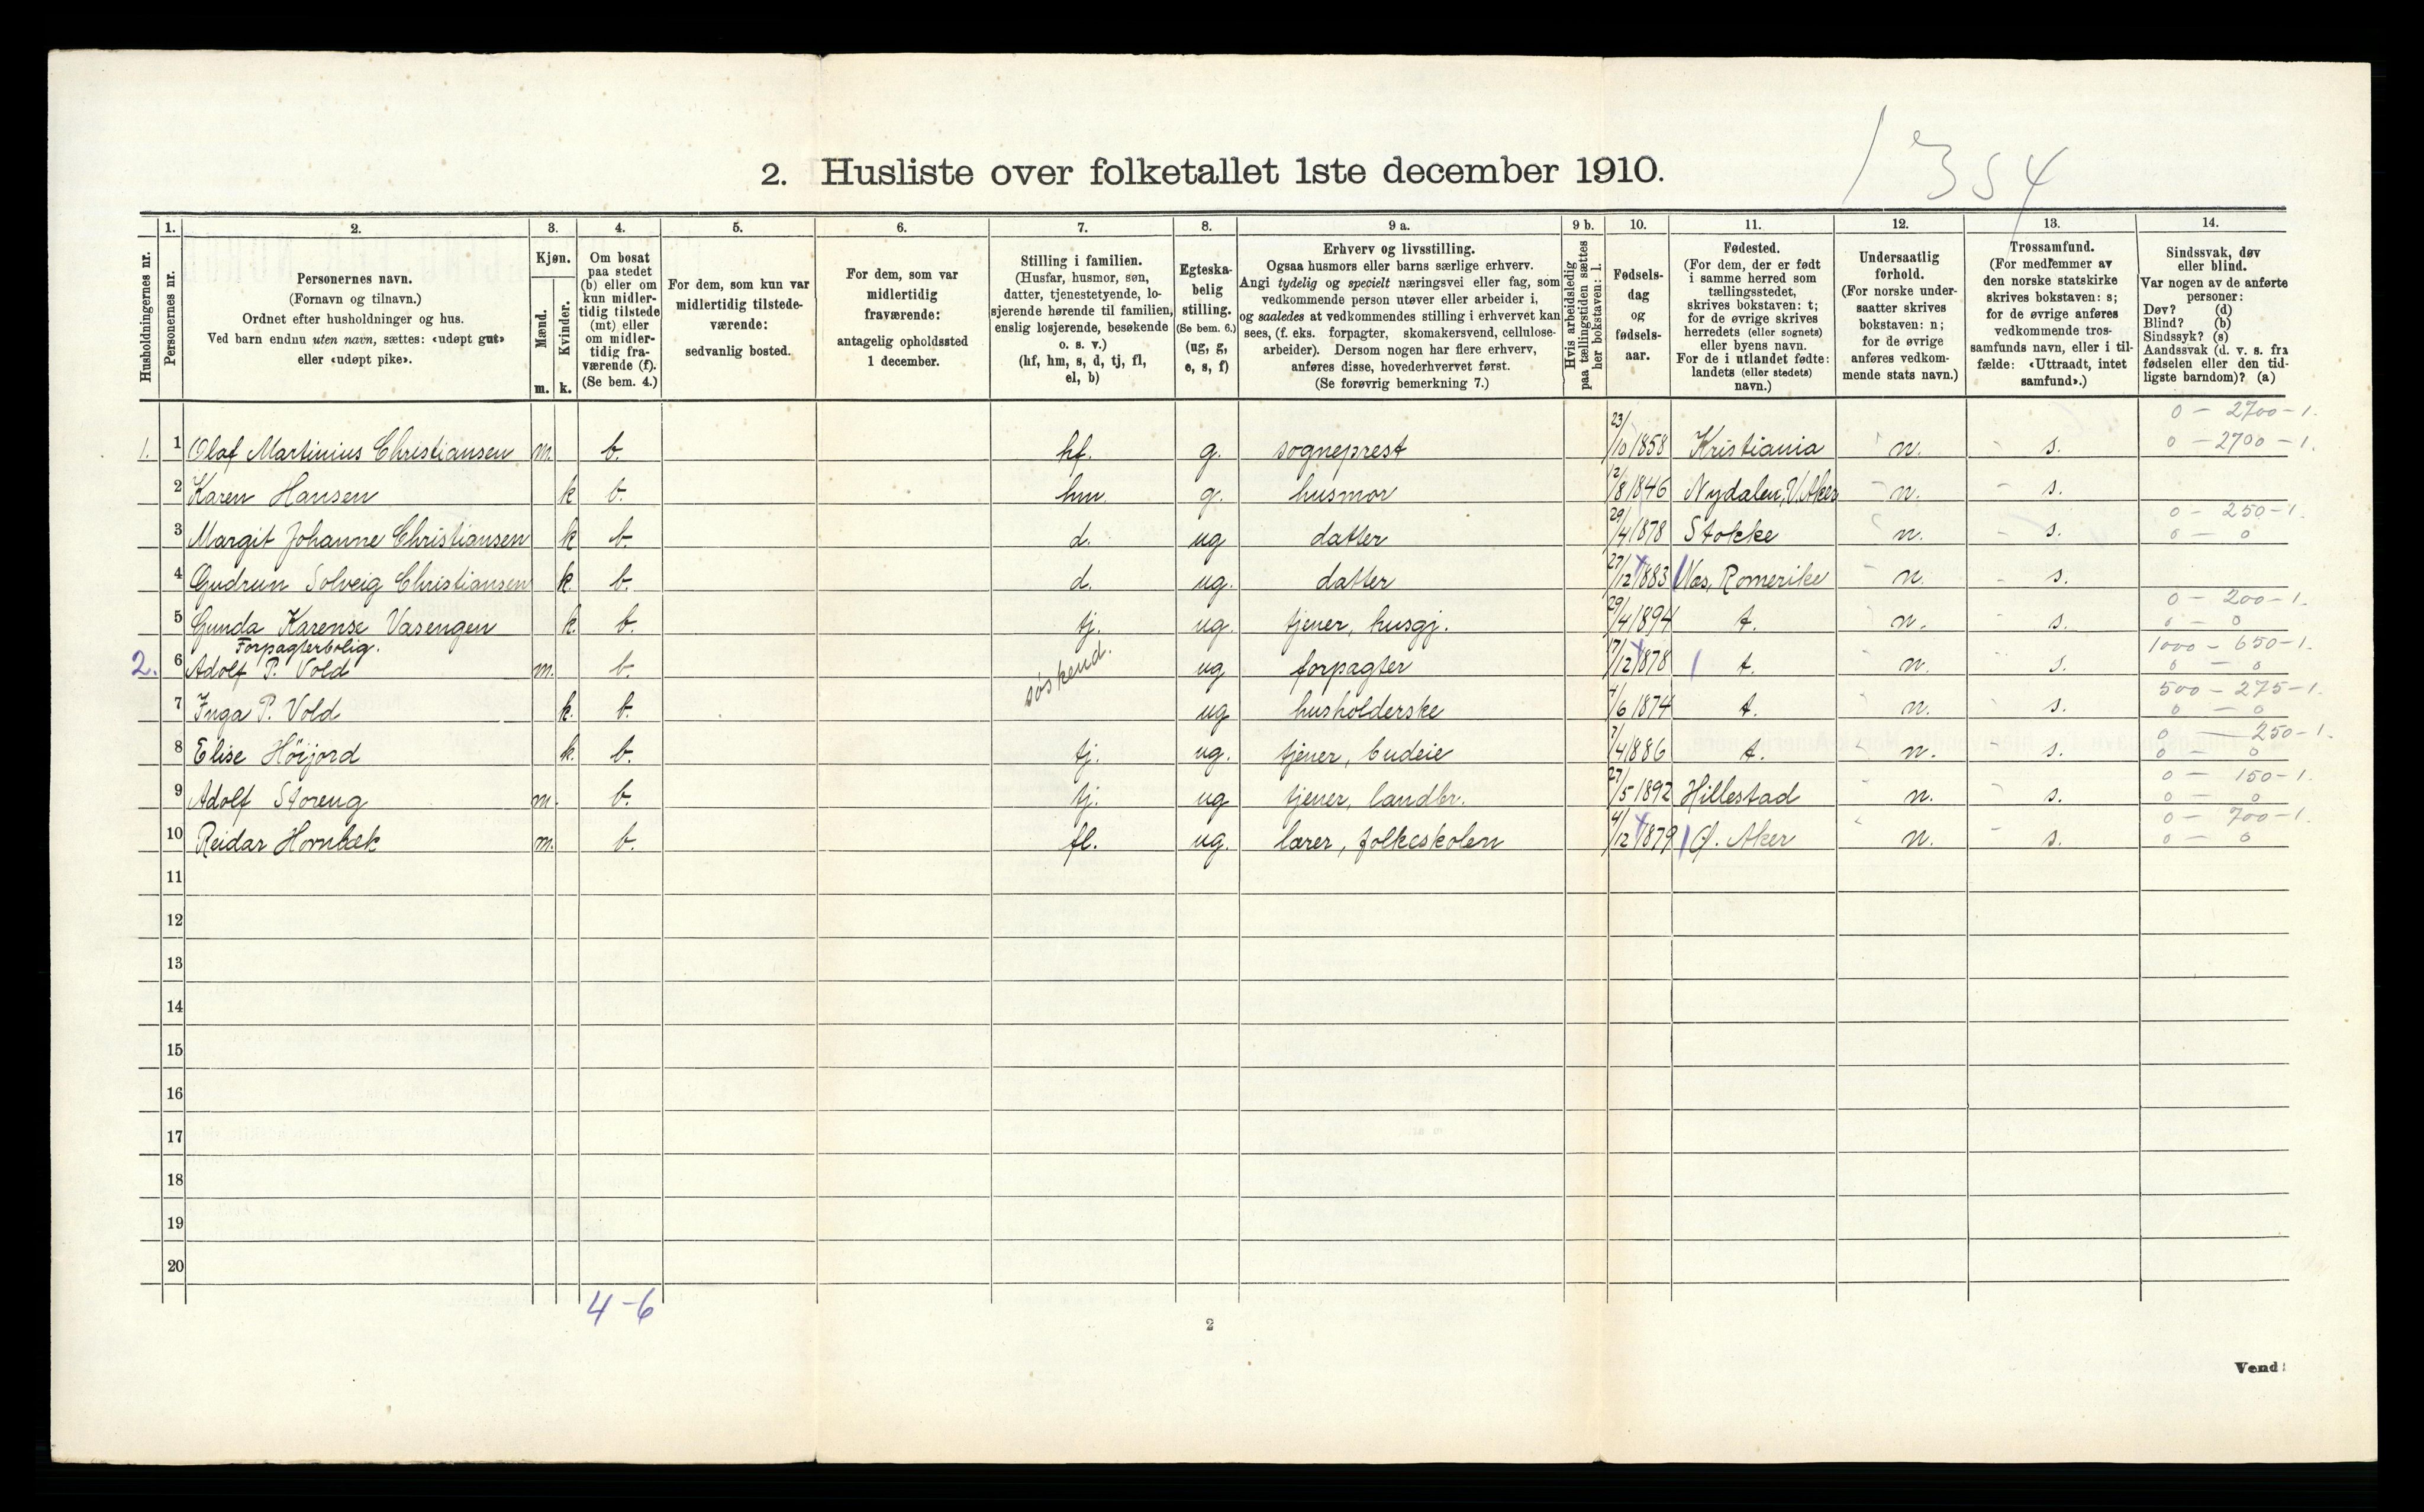 1354
2. Husliste over folketallet 1ste december 1910.
Husholdningernes nr.
1.
Personernes nr.
2.
Personernes navn.
(Fornavn og tilnavn.)
Ordnet efter husholdninger og hus.
Ved barn endnu uten navn, sættes: «udøpt gut»
eller «udøpt pike».
3.
Kjøn.
Mænd.
m.
Kvinder.
k.
4.
Om bosat
paa stedet
(b) eller om
kun midler-
tidig tilstede
(mt) eller
om midler-
tidig fra-
værende (f).
(Se bem. 4.)
5.
For dem, som kun var
midlertidig tilstede-
værende:
sedvanlig bosted.
6.
For dem, som var
midlertidig
fraværende:
antagelig opholdssted
1 december.
7.
Stilling i familien.
(Husfar, husmor, søn,
datter, tjenestetyende, lo-
sjerende hørende til familien,
enslig losjerende, besøkende
o. s. v.)
(hf, hm, s, d, tj, fl,
el, b)
8.
Egteska-
belig
stilling.
(Se bem. 6.)
(ug, g,
e, s, f)
9 a.
Erhverv og livsstilling.
Ogsaa husmors eller barns særlige erhverv.
Angi tydelig og specielt næringsvei eller fag, som
vedkommende person utøver eller arbeider i,
og saaledes at vedkommendes stilling i erhvervet kan
sees, (f. eks. forpagter, skomakersvend, cellulose-
arbeider). Dersom nogen har flere erhverv,
anføres disse, hovederhvervet først.
(Se forøvrig bemerkning 7.)
9 b.
Hvis arbeidsledig
paa tællingstiden sættes
her bokstaven: l.
10.
Fødsels-
dag
og
fødsels-
aar.
11.
Fødested.
(For dem, der er født
i samme herred som
tællingsstedet,
skrives bokstaven: t;
for de øvrige skrives
herredets (eller sognets)
eller byens navn.
For de i utlandet fødte:
landets (eller stedets)
navn.)
12.
Undersaatlig
forhold.
(For norske under-
saatter skrives
bokstaven: n;
for de øvrige
anføres vedkom-
mende stats navn.)
13.
Trossamfund.
(For medlemmer av
den norske statskirke
skrives bokstaven: s;
for de øvrige anføres
vedkommende tros-
samfunds navn, eller i til-
fælde: «Uttraadt, intet
samfund».)
14.
Sindssvak, døv
eller blind.
Var nogen av de anførte
personer:
Døv? (d)
Blind? (b)
Sindssyk? (s)
Aandssvak (d. v. s. fra
fødselen eller den tid-
ligste barndom)? (a)
0 - 2700 - 1.
1. 1 Olaf Martinius Christiansen m. b. hf. g. sogneprest 23/10 1858 Kristiania n. s. 0 - 2700 - 1.
2 Karen Hansen k b. hm. g. husmor 12/8 1846 Nydalen, V. Aker n. s.
0 - 250 - 1.
3 Margit Johanne Christiansen k b. d. ug datter 29/4 1878 Stokke n. s. 0 - 0
4 Gudrun Solveig Christiansen k. b. d. ug. datter 27/12 1883 Næs, Romerike n. s.
0 - 200 - 1.
5 Gunda Karense Vasengen k. b. tj. ug. tjener, husgj. 29/4 1894 t. n. s. 0 - 0
Forpagterbolig.
1000 - 650 - 1.
2. 6 Adolf P. Vold m. b. søskend. ug forpagter 17/12 1878 t. n. s. 0 - 0
500 - 275 - 1.
7 Inga P. Vold k. b. ug husholderske 4/6 1874 t. n. s. 0 - 0
0 - 250 - 1.
8 Elise Höijord k. b. tj. ug. tjener, budeie 7/4 1886 t. n. s. 0 - 0
0 - 150 - 1.
9 Adolf Storeng m. b. tj. ug tjener, landbr. 27/5 1892 Hillestad n. s. 0 - 0
0 - 700 - 1.
10 Reidar Hornbæk m. b. fl. ug. lærer, folkeskolen 4/12 1879 Ø. Aker n. s. 0 - 0
11
12
13
14
15
16
17
18
19
20
4-6
2
Vend!